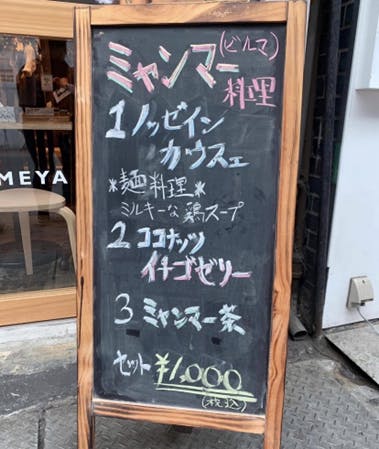 MEYA
ミャンマー(ビルマ)
料理
1 ノッゼイン
カウスェ
*麺料理*
ミルキーな鶏スープ
2 ココナッツ
イチゴゼリー
3 ミャンマー茶
セット ¥1,000
(税込)